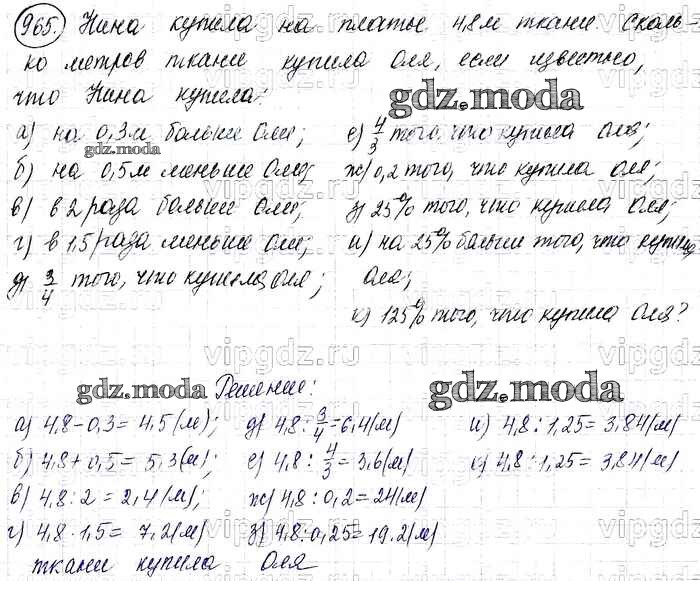 965. Нина купила на платье 4,8 м ткани. Сколь-
ко метров ткани купила Оля, если известно,
что Нина купила:
gdz.moda
а) на 0,3 м больше Оли;
gdz.moda
б) на 0,5 м меньше Оли;
в) в 2 раза больше Оли;
г) в 1,5 раза меньше Оли;
д) 3/4 того, что купила Оля;
е) 4/3 того, что купила Оля;
ж) 0,2 того, что купила Оля;
з) 25% того, что купила Оля;
и) на 25% больше того, что купила
Оля;
к) 125% того, что купила Оля?
vipgdz.ru
gdz.moda
Решение:
gdz.moda
а) 4,8-0,3=4,5(м);
б) 4,8+0,5=5,3(м);
в) 4,8:2=2,4(м);
г) 4,8·1,5=7,2(м)
д) 4,8:3/4=6,4(м)
е) 4,8:4/3=3,6(м)
ж) 4,8:0,2=24(м)
з) 4,8:0,25=19.2(м)
и) 4,8:1,25=3,84(м)
к) 4,8:1,25=3,84(м)
ткани купила Оля